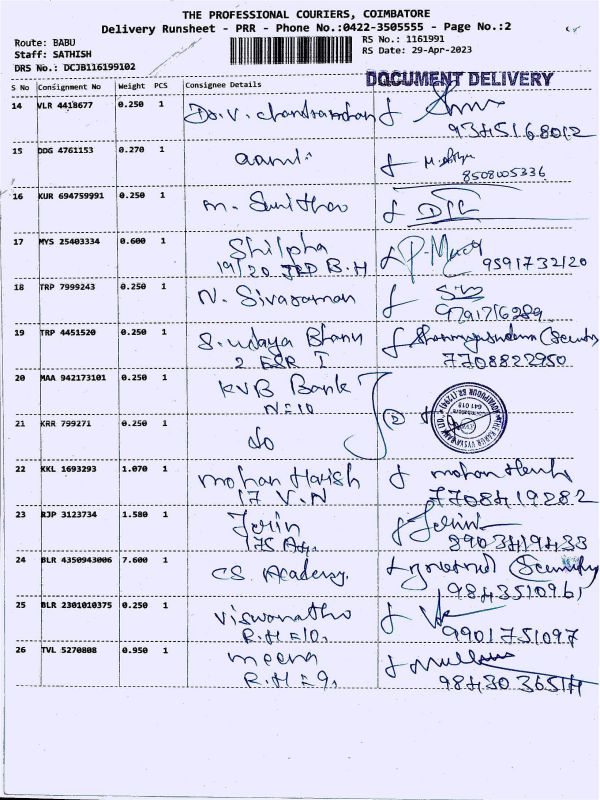 THE PROFESSIONAL COURIERS, COIMBATORE
Delivery Runsheet - PRR - Phone No.:0422-3505555 - Page No.:2
Route: BABU
Staff: SATHISH
DRS No.: DCJB116199102
RS No.: 1161991
RS Date: 29-Apr-2023
DOCUMENT DELIVERY
S No Consignment No Weight PCS Consignee Details
14 VLR 4418677 0.250 1 9345168012
15 DDG 4761153 0.270 1 8508005336
16 KUR 694759991 0.250 1 m. Sunitha
17 MYS 25403334 0.600 1 Shilpha P. 9591732120
19/20 B.H
18 TRP 7999243 0.250 1 N. Sivaraman 9791716289
19 TRP 4451520 0.250 1 S. udaya Bhanu
2 ESR I 7708822950
20 MAA 942173101 0.250 1 KVB Bank
N=10
21 KRR 799271 0.250 1 do
22 KKL 1693293 1.070 1 mohan Harish
17 V.N 7708419282
23 RJP 3123734 1.580 1 Jerin Jerin
175 8903419433
24 BLR 4350943006 7.600 1 CS. Academy. (Security
9843510961
25 BLR 2301010375 0.250 1 viswanatha
R.H=10, 9901751097
26 TVL 5270808 0.950 1 meena
R.H=9,